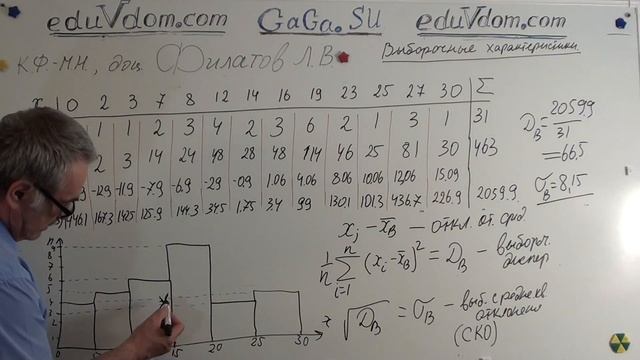 eduVdom.com GaGa.SU eduVdom.com
К.Ф.-М.Н., доц. Филатов Л.В. Выборочные характеристики
x 0 2 3 7 8 12 14 16 19 23 25 27 30 Σ
1 1 2 3 4 2 3 6 2 1 3 1 31
2 3 14 24 48 28 48 114 46 25 81 30 463
-12.9 -11.9 -7.9 -6.9 -2.9 -0.9 1.06 4.06 8.06 10.06 12.06 15.09
167.3 142.5 125.9 144.3 34.5 1.75 3.4 99 130.1 101.3 436.7 226.9 2059.9
D_B = 2059.9 / 31
= 66.5
σ_B = 8,15
x_j - x̄_B - откл. от сред.
1/n Σ_{i=1}^{n} (x_i - x̄_B)² = D_B - выбороч. диспер.
√D_B = σ_B - выб. среднекв. отклонени
(СКО)
n
9
8
6
5
4
3
0 15 20 25 30 x